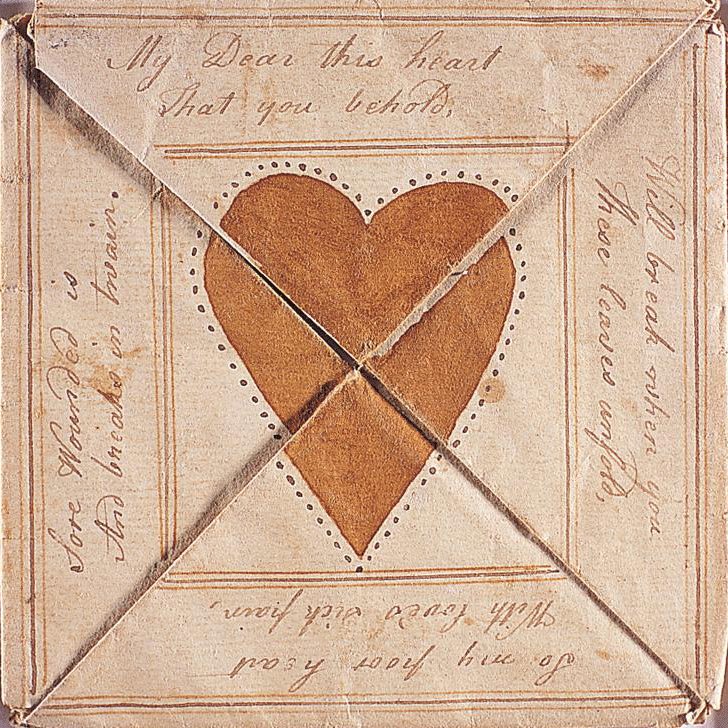 My Dear this heart
That you behold,
Will break when you
These leaves unfold,
So my poor heart
With loves sick pain,
Sore Wounded is
And breaks in twain.